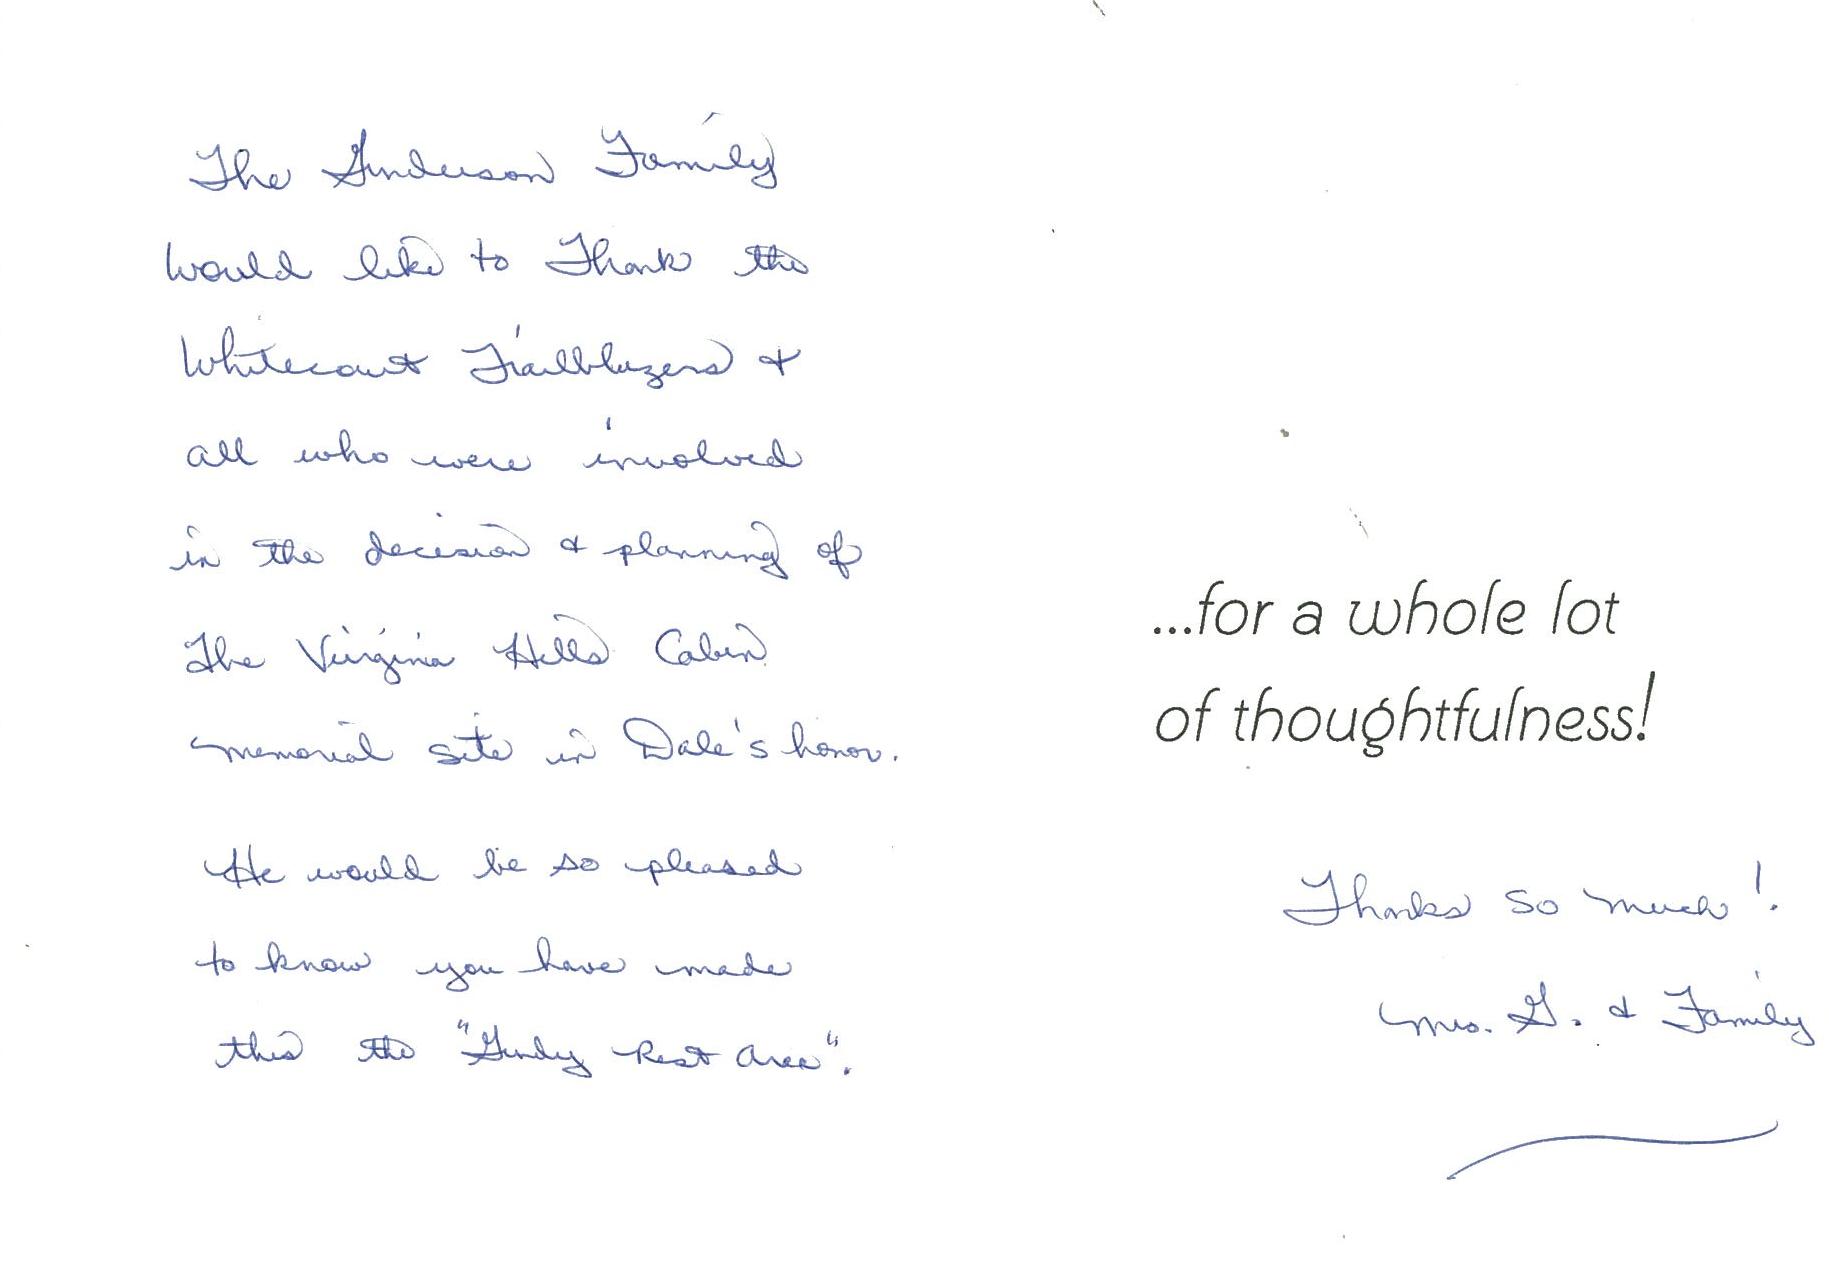 The Gunderson Family
would like to Thank the
Whitecourt Trailblazers &
all who were involved
in the decision & planning of
The Virginia Hills Cabin
memorial site in Dale's honor.
He would be so pleased
to know you have made
this the "Gundy Rest Area".
...for a whole lot
of thoughtfulness!
Thanks so much!
Mrs. G. & Family